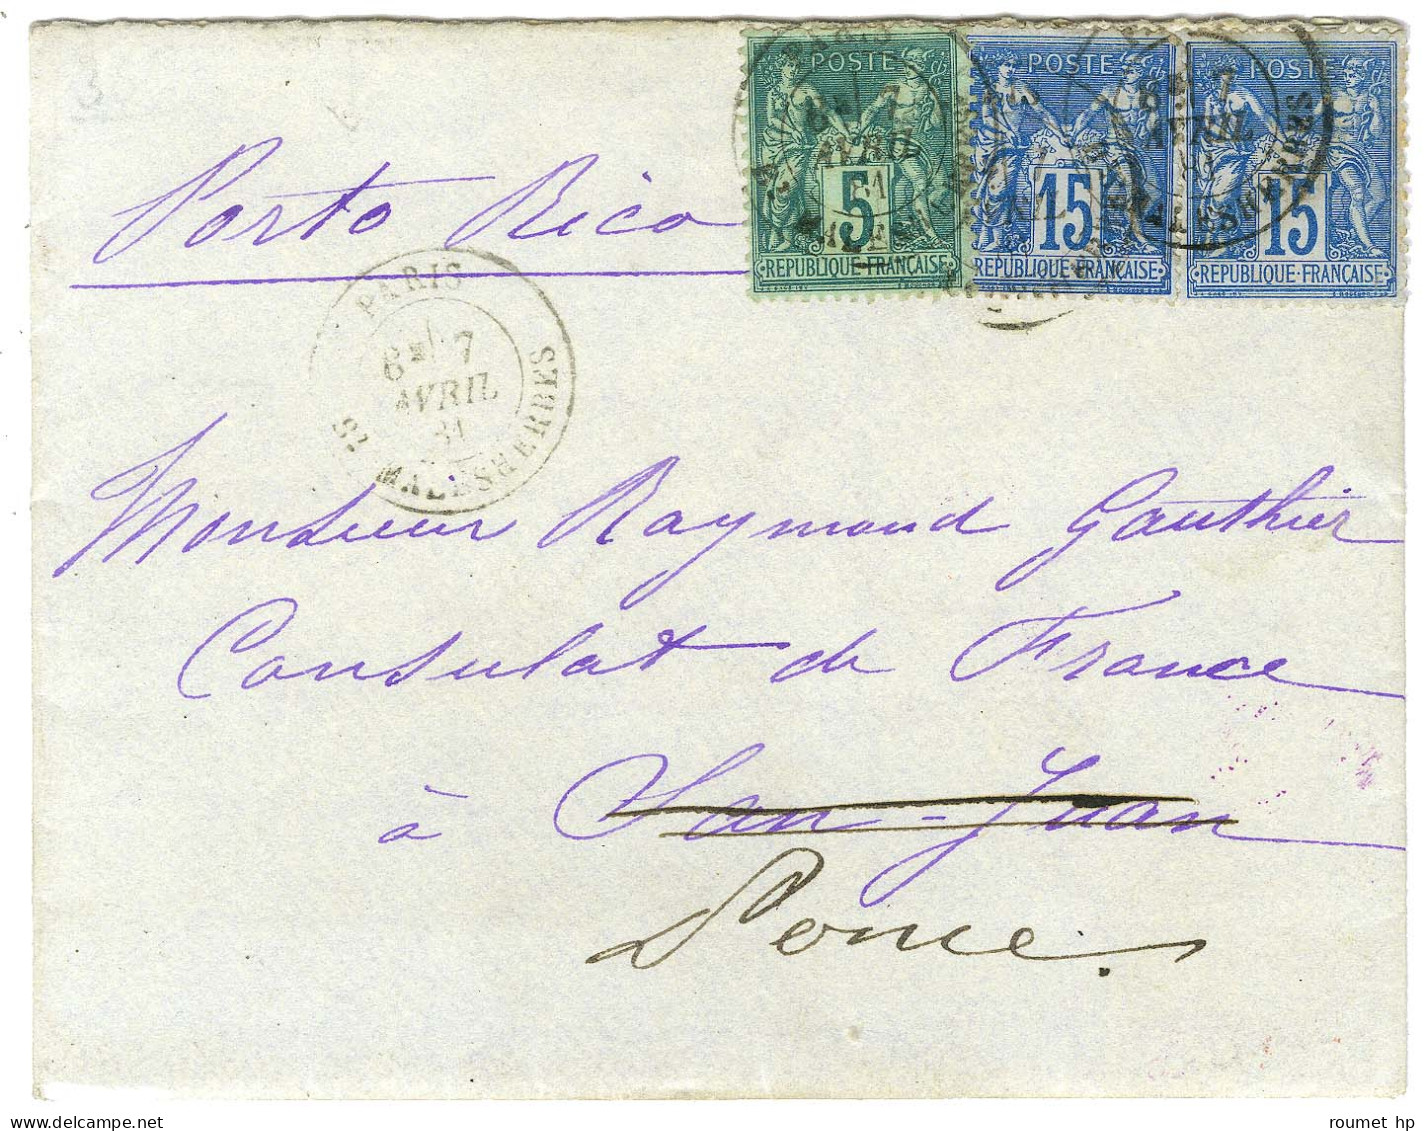 POSTE POSTE POSTE
5 15 15
REPUBLIQUE FRANÇAISE REPUBLIQUE FRANÇAISE REPUBLIQUE FRANÇAISE
Porto Rico
PARIS
6E 7
AVRIL
81
Bt MALESHERBES
Monsieur Raymond Gauthier
Consulat de France
à San-Juan
Ponce.
www.delcampe.net
roumet hp